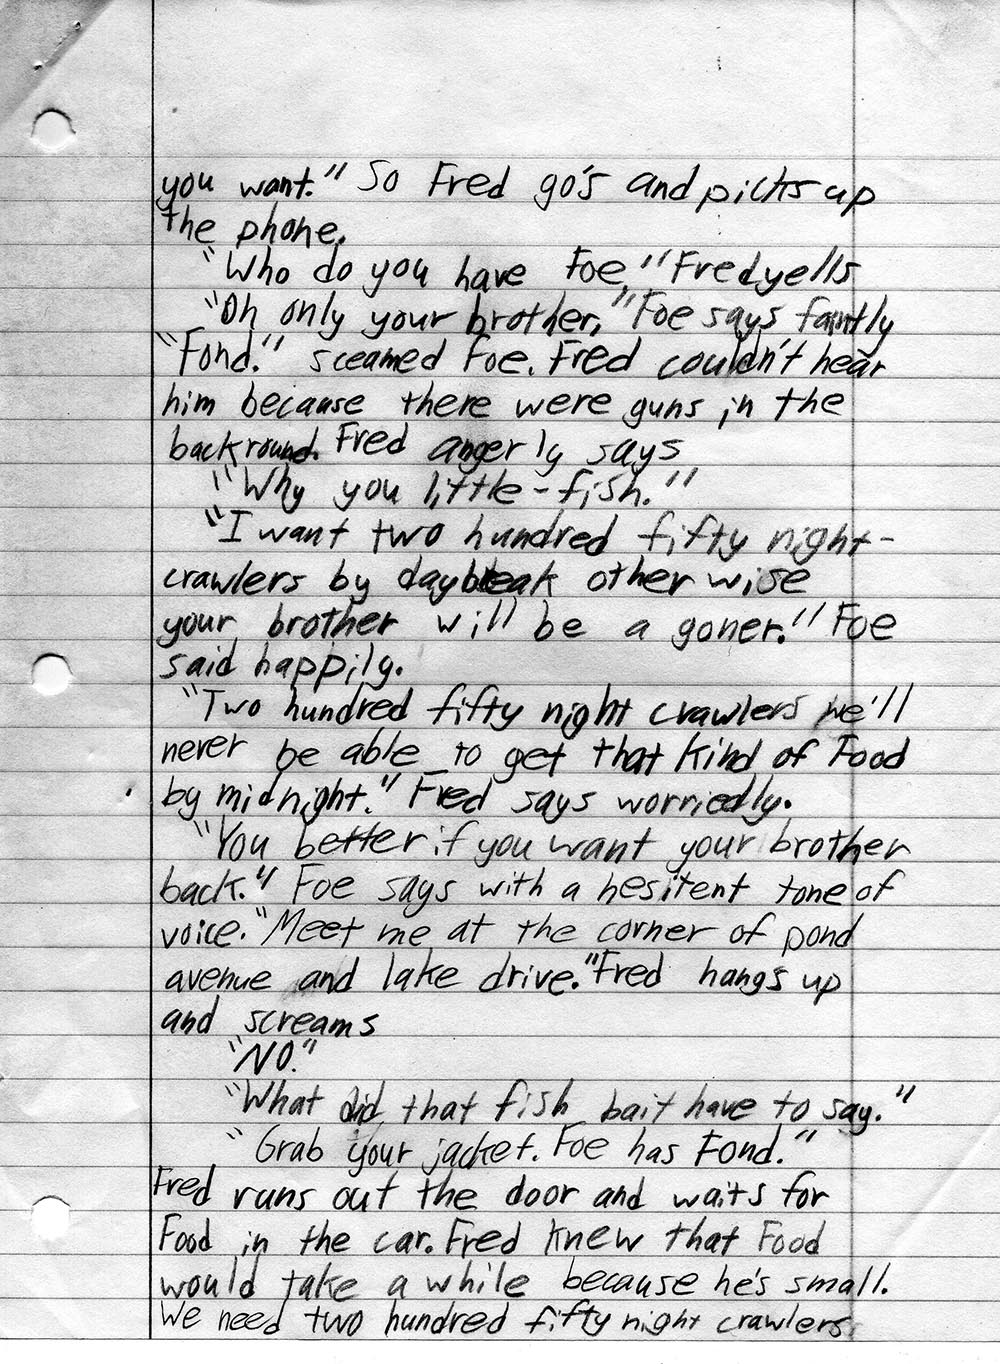 you want." So Fred go's and picks up
the phone.
"Who do you have Foe," Fred yells
"Oh only your brother," Foe says faintly
"Fond." sceamed Foe. Fred couldn't hear
him because there were guns in the
backround. Fred angerly says
"Why you little-fish."
"I want two hundred fifty night-
crawlers by daybreak other wise
your brother will be a goner." Foe
said happily.
"Two hundred fifty night crawlers we'll
never be able to get that kind of Food
by midnight." Fred says worriedly.
"You better if you want your brother
back." Foe says with a hesitent tone of
voice. "Meet me at the corner of pond
avenue and lake drive." Fred hangs up
and screams
"NO."
"What did that fish bait have to say."
"Grab your jacket. Foe has Fond."
Fred runs out the door and waits for
Food in the car. Fred knew that Food
would take a while because he's small.
We need two hundred fifty night crawlers